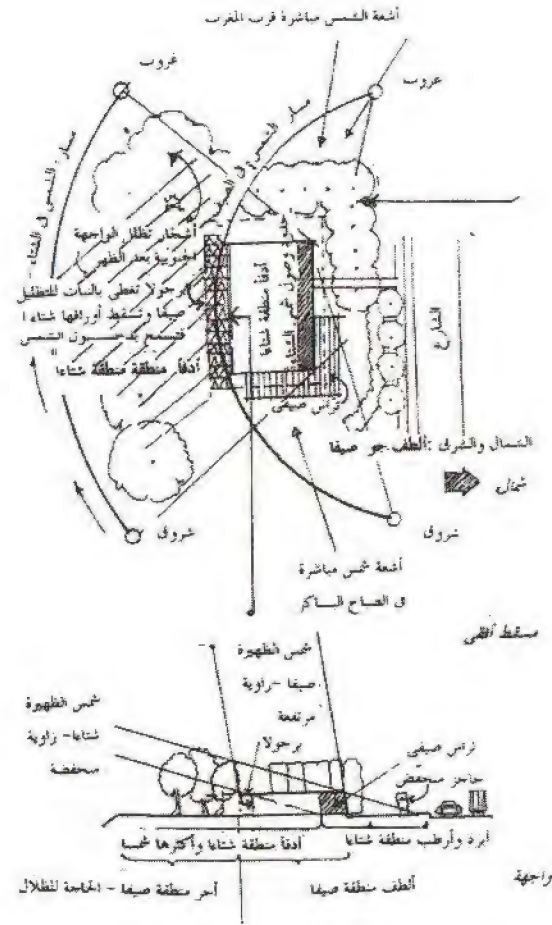 أشعة الشمس مباشرة قرب المغرب
غروب
غروب
مسار الشمس فى الشتاء
مسار الشمس فى
أشجار تظلل الواجهة
الجنوبية بعد الظهر
برجولا تغطى بالنبات للتظليل
صيفا وتسقط أوراقها شتاءا
فتسمح بدخول الشمس
أدفأ منطقة منطقة شتاءا
أدفأ منطقة شتاءا
وصول شمس الشتاء
الشارع
تراس صيفى
الشمال والشرق : ألطف جو صيفا
شمال
شروق
شروق
أشعة شمس مباشرة
فى الصباح الباكر
مسقط أفقى
شمس الظهيرة
صيفا - زاوية
مرتفعة
برجولا
شمس الظهيرة
شتاءا - زاوية
منخفضة
تراس صيفى
حاجز منخفض
أدفأ منطقة شتاءا وأكثرها شمسا
أبرد وأرطب منطقة شتاءا
أحر منطقة صيفا - الحاجة للظلال
ألطف منطقة صيفا
واجهة